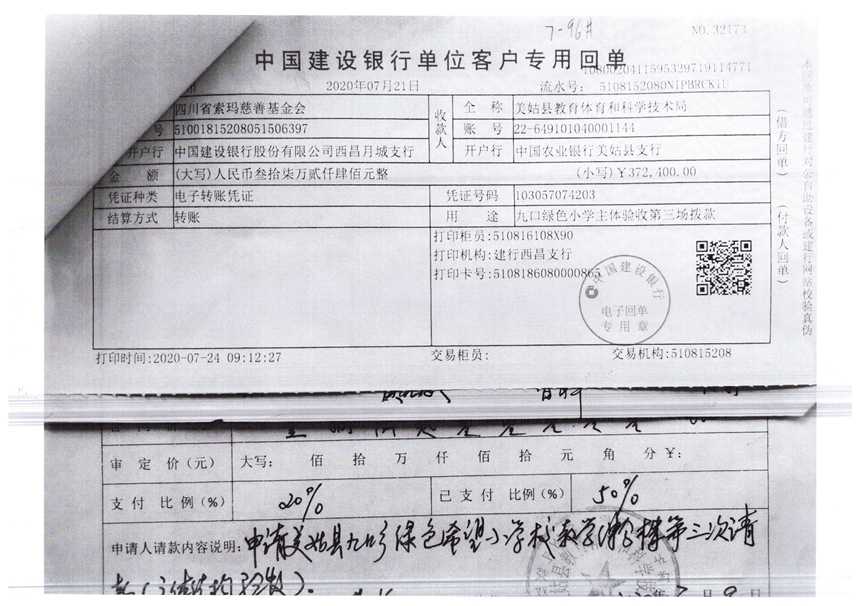 7-96#
NO.32173
中国建设银行单位客户专用回单
2020年07月21日
流水号: 5108152080N1PBRCK1U
四川省索玛慈善基金会
收款人
全称
美姑县教育体育和科学技术局
号
51001815208051506397
账号
22-649101040001144
开户行
中国建设银行股份有限公司西昌月城支行
开户行
中国农业银行美姑县支行
金额
(大写)人民币叁拾柒万贰仟肆佰元整
(小写)¥372,400.00
凭证种类
电子转账凭证
凭证号码
103057074203
结算方式
转账
用途
九口绿色小学主体验收第三场拨款
打印柜员:510816108X90
打印机构:建行西昌支行
打印卡号:5108186080000865
中国建设银行
电子回单
专用章
打印时间:2020-07-24 09:12:27
交易柜员:
交易机构:510815208
(借方回单)
(付款人回单)
审定价(元)
大写: 佰 拾 万 仟 佰 拾 元 角 分 ¥:
支付比例(%)
20%
已支付比例(%)
50%
申请人请款内容说明:申请美姑县九口乡绿色希望小学校教学综合楼第三次请